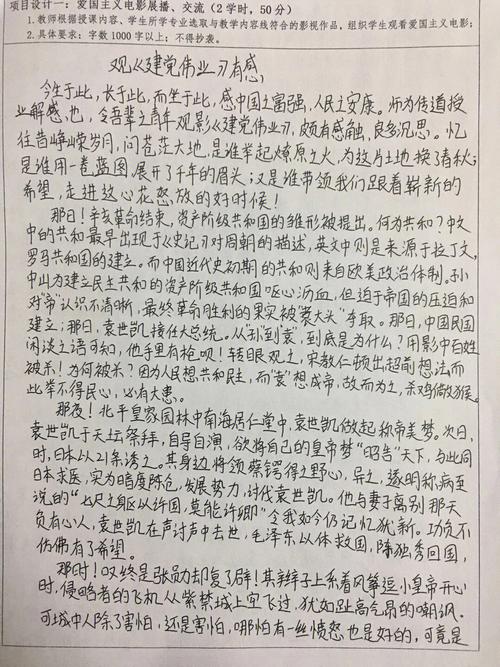 项目设计一：爱国主义电影展播、交流（2学时，50分）
1.教师根据授课内容、学生所学专业选取与教学内容线符合的影视作品，组织学生观看爱国主义电影；
2.具体要求：字数1000字以上；不得抄袭。
观《建党伟业》有感
今生于此，长于此，而坐于此，感中国之富强，人民之安康。师为传道授
业解惑也，令吾辈青年观影《建党伟业》，颇有感触，良多沉思。忆
往昔峥嵘岁月，问苍茫大地，是谁举起燎原之火，为这片土地换了春秋；
是谁用一卷蓝图展开了千年的眉头；又是谁带领我们跟着崭新的
希望，走进这心花怒放的好时候！
那日！辛亥革命结束，资产阶级共和国的雏形被提出。何为共和？中文
中的共和最早出现于《史记》对周朝的描述，英文中则是来源于拉丁文，
罗马共和国的建立。而中国近代史初期的共和则来自欧美政治体制。孙
中山为建立民主共和的资产阶级共和国呕心沥血，但迫于帝国的压迫和
对"帝"认识不清晰，最终革命胜利的果实被"袁大头"窃取。那日，中国民国
建立；那日，袁世凯接任大总统。从"孙"到"袁"，到底是为什么？用影中百姓
闲谈之语可知，他手里有枪呗！转眼观之，宋教仁顿出超前想法而
被杀！为何被杀？因为人民想共和民主，而"袁"想成帝，故而为之，杀鸡儆猴。
此举不得民心，必有大患。
那夜！北平皇家园林中南海居仁堂中，袁世凯做起称帝美梦。次日，
袁世凯于天坛祭拜，自导自演，欲将自己的皇帝梦"昭告"天下，与此同
时，日本以21条诱之。其身边将领蔡锷得之野心，异之，遂明称病至
日本求医，实为暗度陈仓，发展势力，讨伐袁世凯。他与妻子离别那天
说的"七尺之躯以许国，莫能许卿"令我如今仍记忆犹新。功负不
负有心人，袁世凯在声讨声中去世，毛泽东以体救国，陈独秀回国，
仿佛有了希望。
那时！叹终是张勋却复了辟！其辫子上系着风筝逗小皇帝开心
时，侵略者的飞机从紫禁城上空飞过，犹如趾高气昂的嘲讽。
可城中人除了害怕，还是害怕，哪怕有一丝愤怒也是好的，可竟是